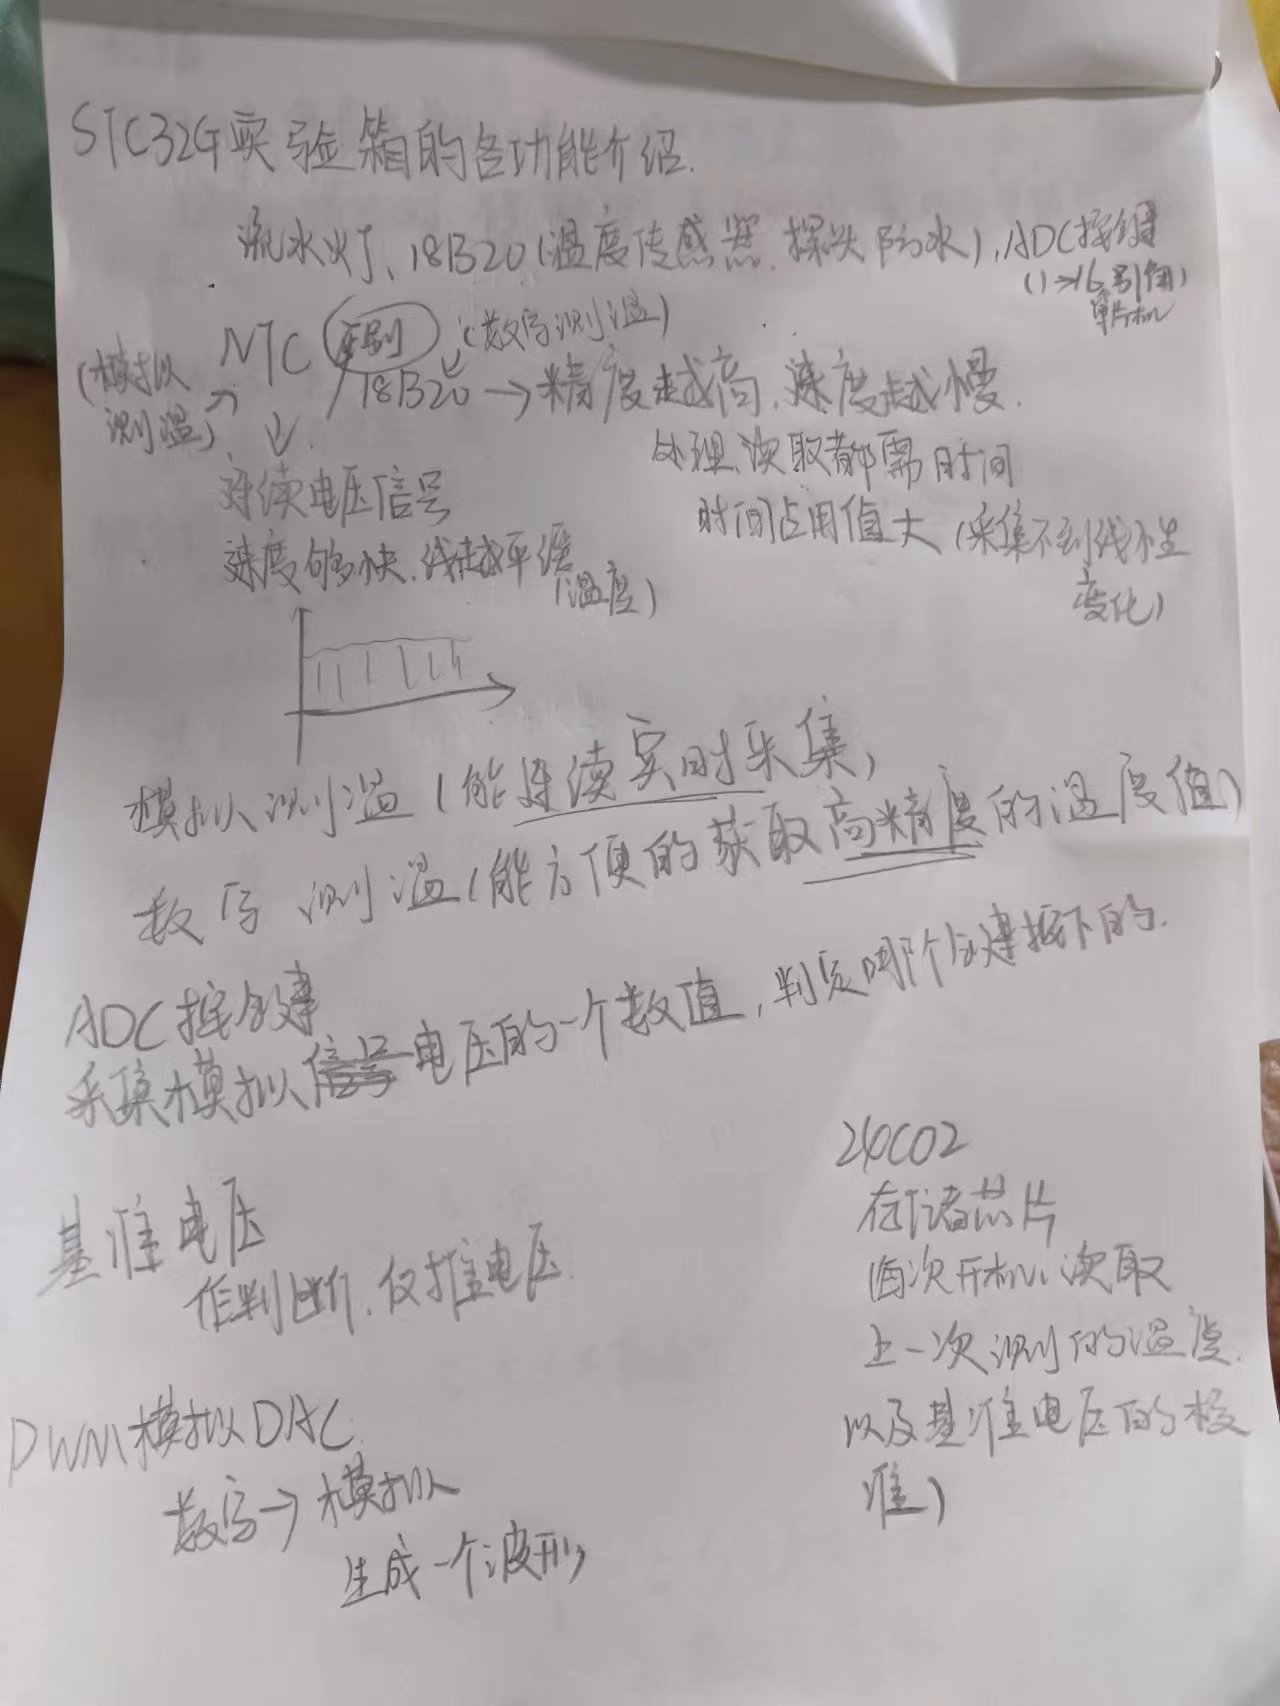 STC32G实验箱的各功能介绍.
流水灯、18B20(温度传感器.探头防水),ADC按键
(1→16引脚)
单片机
NTC 区别 (数字测温)
(模拟
测温)
18B20→精度越高,速度越慢.
处理、读取都需时间
连续电压信号
时间占用值大(采集不到线性
变化)
速度够快.线越平缓
(温度)
模拟测温(能连续实时采集)
数字测温(能方便的获取高精度的温度值)
ADC按键
采集模拟信号电压的一个数值,判定哪个键按下的.
基准电压
作判断.仅推电压.
24C02
存储芯片
(首次开机、读取
上一次测的温度.
以及基准电压的校
准)
PWM模拟DAC.
数字→模拟
生成一个波形